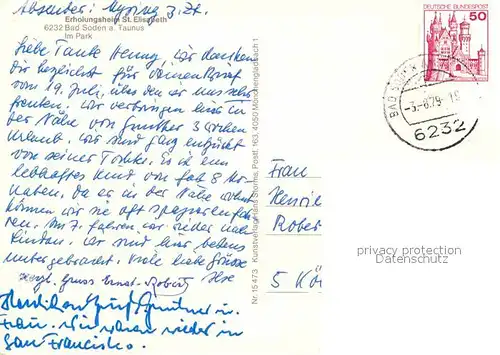 Absender:
Erholungsheim St. Elisabeth
6232 Bad Soden a. Taunus
Im Park
Liebe Tante Henny, wir danken
Dir herzlichst für Deinen Brief
vom 19. Juli, über den wir uns sehr
freuten. Wir verbringen hier in
der Nähe von Gunther 3 Wochen
Urlaub. Wir sind ganz entzückt
von seiner Tochter. Es ist ein
lebhaftes Kind von fast 8 Mo-
naten, da er in der Nähe wohnt
können wir sie oft spazierenfah
ren. Am 7. fahren wir wieder nach
Lindau. Wir sind hier bestens
untergebracht. Viele liebe Grüsse
Herzl. Gruss Ernst-Robert Ilse
Herzlichen Gruß Gunther u.
Frau. Wir waren wieder in
San Francisko.
Nr. 15 473 Kunstverlag Hans Storms, Postf. 163, 4050 Mönchengladbach 1
DEUTSCHE BUNDESPOST
50
BAD SODEN
-3.-8.79-
6232
Frau
Henri
Rober
5 Kö
privacy protection
Datenschutz